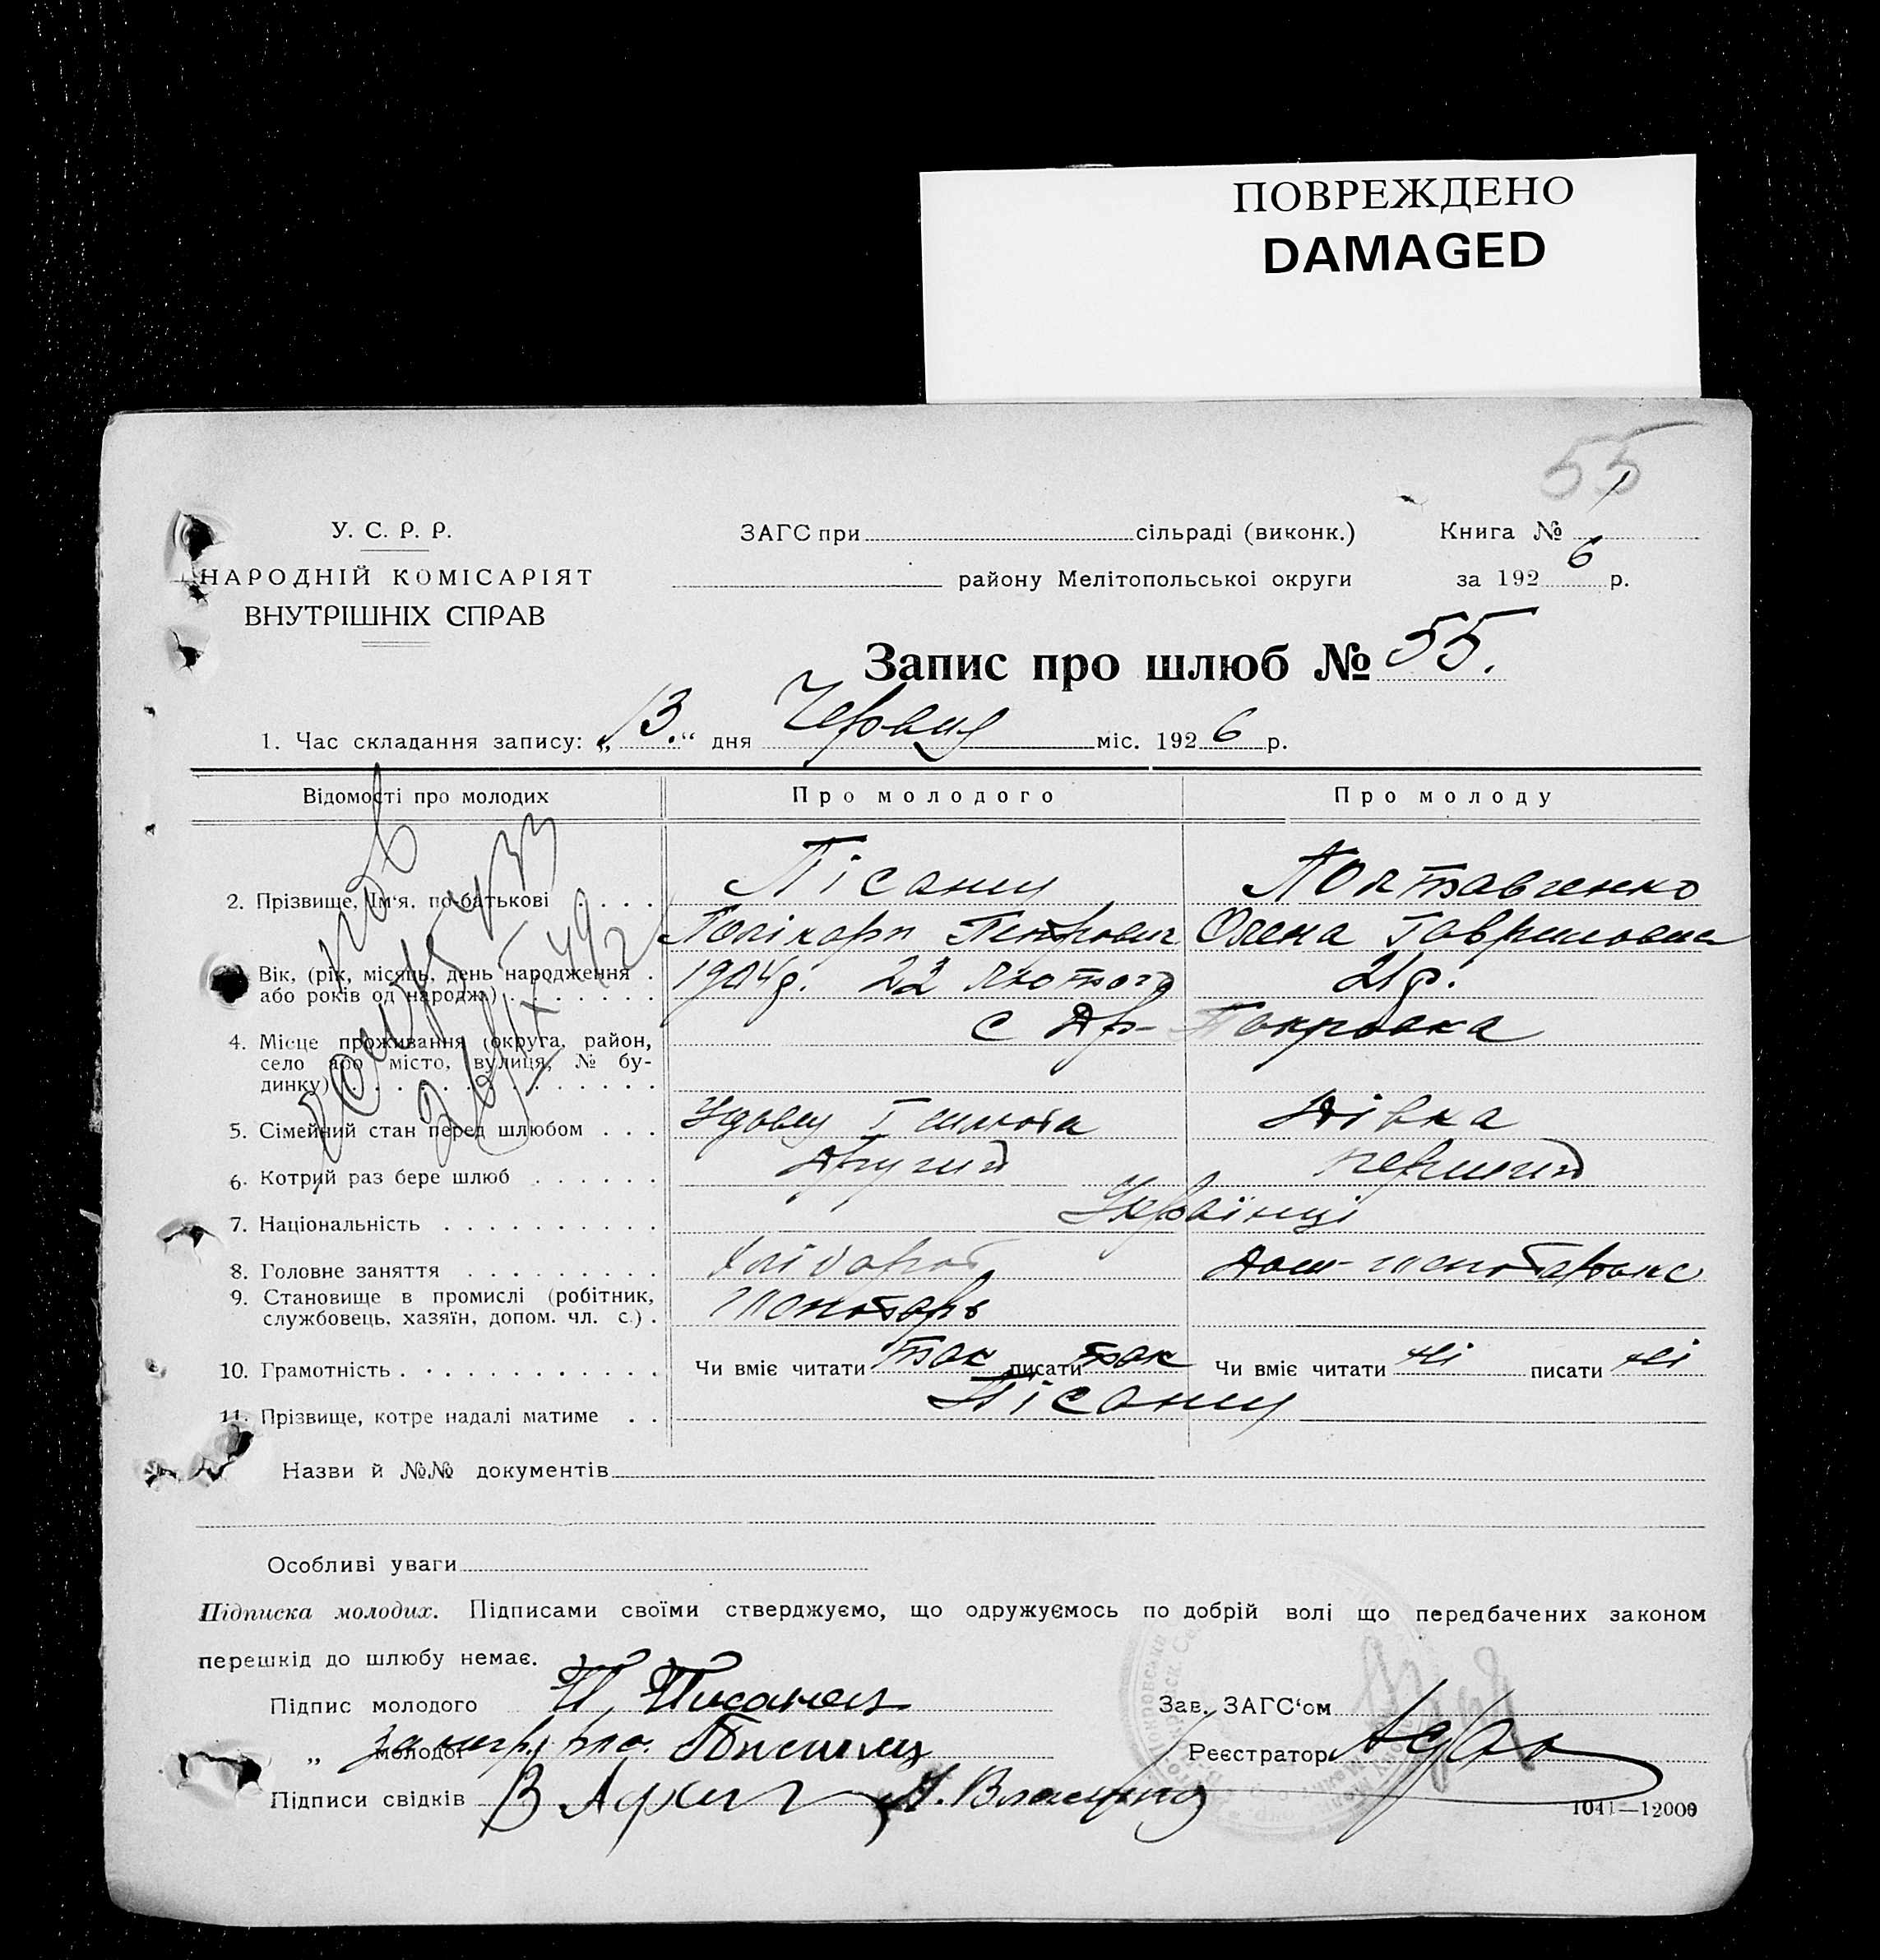 ПОВРЕЖДЕНО
DAMAGED
55
У. С. Р. Р.
НАРОДНІЙ КОМІСАРІЯТ
ВНУТРІШНІХ СПРАВ
ЗАГС при сільраді (виконк.)
району Мелітопольської округи
Книга №
за 1926 р.
Запис про шлюб № 55.
1. Час складання запису: „13.“ дня Червця міс. 1926 р.
Відомості про молодих Про молодого Про молоду
2. Прізвище, Ім'я, по-батькові . . . . Пісанец Полтавченко
Полікарп Петрович Олена Гавриловна
Вік, (рік, місяць, день народження . 1904р. 22 лютого 21 р.
або років од народж.) . . . . . . .
4. Місце проживання (округа, район, с Др- Покровка
село або місто, вулиця, № бу-
динку) . . . . . . . . . . . . .
5. Сімейний стан перед шлюбом . . . Удовец І шлюба Дівка
6. Котрий раз бере шлюб . . . . . . Другий первший
7. Національність . . . . . . . . . . Українці
8. Головне заняття . . . . . . . . . Хлібороб
9. Становище в промислі (робітник,
службовець, хазяїн, допом. чл. с.) .
10. Грамотність . . . . . . . . . . . Чи вміє читати так писати так Чи вміє читати ні писати ні
11. Прізвище, котре надалі матиме . . Пісанец
Назви й №№ документів
Особливі уваги
Підписка молодих. Підписами своїми стверджуємо, що одружуємось по добрій волі що передбачених законом
перешкід до шлюбу немає.
Підпис молодого П. Писанец
Зав. ЗАГС‘ом
„ молодої
Реєстратор
Підписи свідків
1041—12000